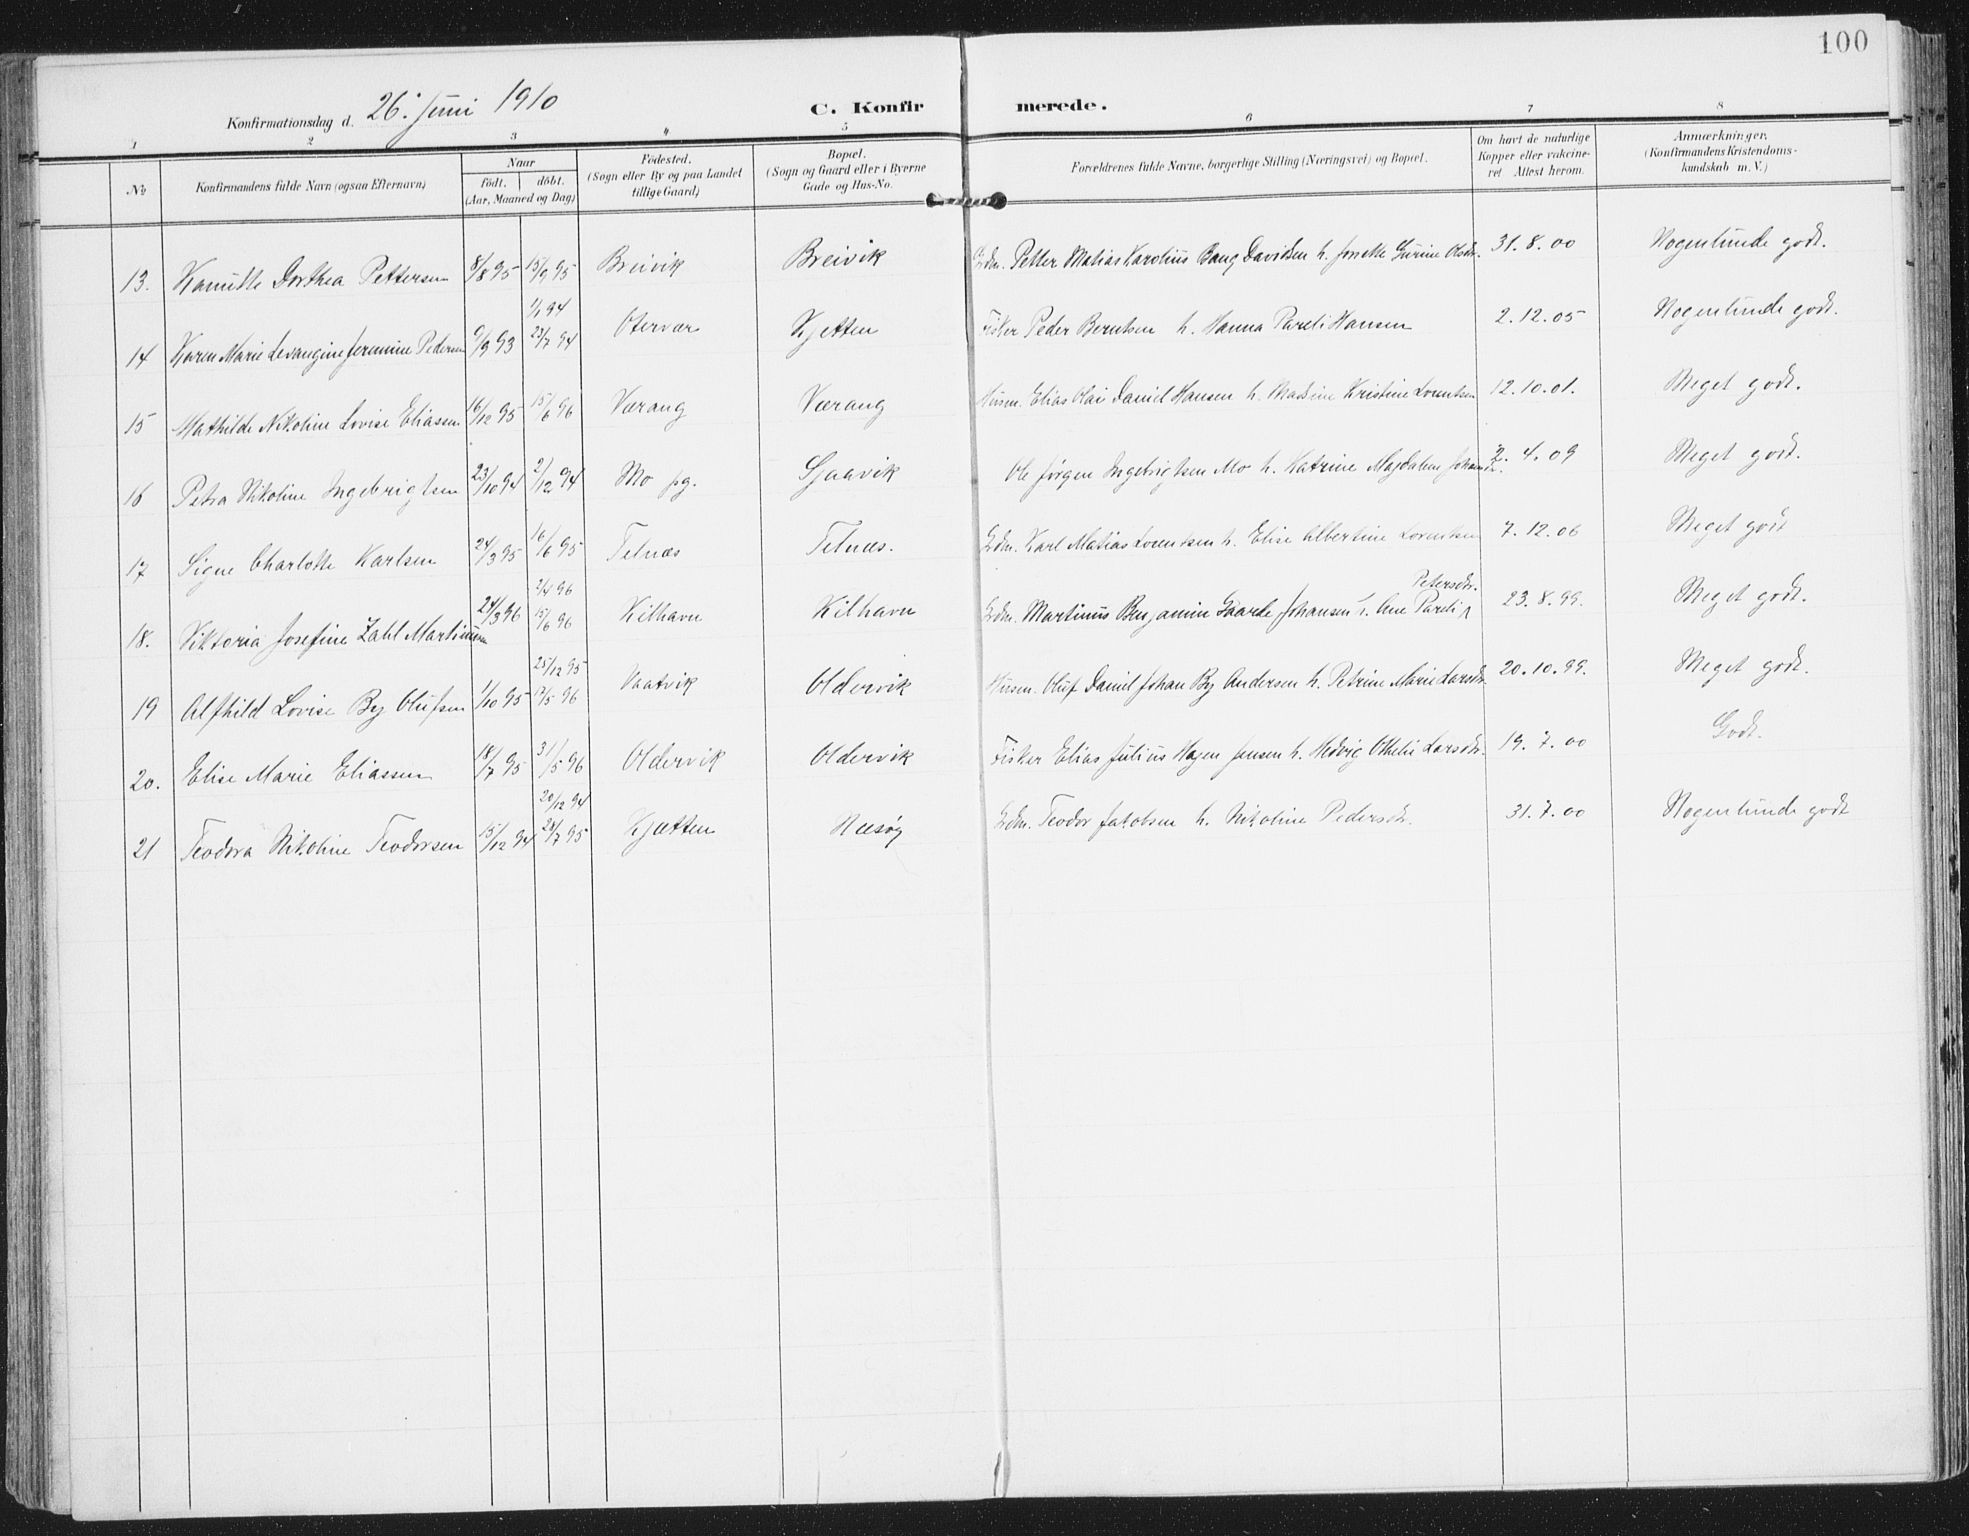 100
Konfirmationsdag d. 26. Juni 1910
C. Konfirmerede.
1 2 3 4 5 6 7 8
№
Konfirmandens fulde Navn (ogsaa Efternavn)
Naar
født. døbt.
(Aar, Maaned og Dag)
Födested.
(Sogn eller By og paa Landet
tillige Gaard)
Bopæl.
(Sogn og Gaard eller i Byerne
Gade og Hus-No.
Forældrenes fulde Navne, borgerlige Stilling (Næringsvei) og Bopæl.
Om havt de naturlige
Kopper eller vakcine-
ret Attest herom.
Anmærkninger.
(Konfirmandens Kristendoms-
kundskab m. V.)
13. Kamille Dorthea Pettersen 8/8 95 15/9 95 Breivik Breivik Grdm. Petter Matias Karolius Bang Davidsen h. Josette Gurine Olsdr. 31.8.00 Nogenlunde godt.
14 Karen Marie Levangine Jermine Pedersen 9/9 93 1/1 94 23/7 94 Otervær Kjetten Fisker Peder Berntsen h. Hanna Pareli Hansen 2.12.05 Nogenlunde godt.
15 Mathilde Nikoline Lovise Eliassen 16/12 95 15/6 96 Værang Værang Husm. Elias Olai Daniel Hansen h. Madsine Kristine Lorentsen 12.10.01. Meget godt.
16 Petra Nikoline Ingebrigtsen 23/10 94 2/12 94 Mo pg. Sjaavik Ole Jörgen Ingebrigtsen Mo h. Katrine Magdalene 2.4.09 Meget godt.
17 Signe Charlotte Karlsen 24/3 95 16/6 95 Telnæs Telnæs. Grdm. Karl Matias Lorentsen h. Elise Albertine Lorentsen 7.12.06 Meget godt
18. Viktoria Josefine Zahl Martinussen 24/3 96 2/4 96 15/6 96 Kilhavn Kilhavn Grdm. Martinus Benjamin Gaarde Johansen h. Ane Pareli Petersdr. 23.8.99. Meget godt.
19 Alfhild Lovise By Olufsen 1/10 95 25/12 95 17/5 96 Vaatvik Oldervik Husm. Oluf Daniel Johan By Andersen h. Petrine Marie Larsdr. 20.10.99. Meget godt.
20. Elise Marie Eliassen 18/7 95 31/5 96 Oldervik Oldervik Fisker Elias Julius Hagen Jensen h. Hedvig Othelie Larsdr. 19.7.00 Godt.
21 Teodora Nikoline Teodorsen 15/12 94 20/12 94 28/7 95 Kjætten Næsøy Grdm. Teodor Jakobsen h. Nikoline Pedersdr. 31.7.00 Nogenlunde godt